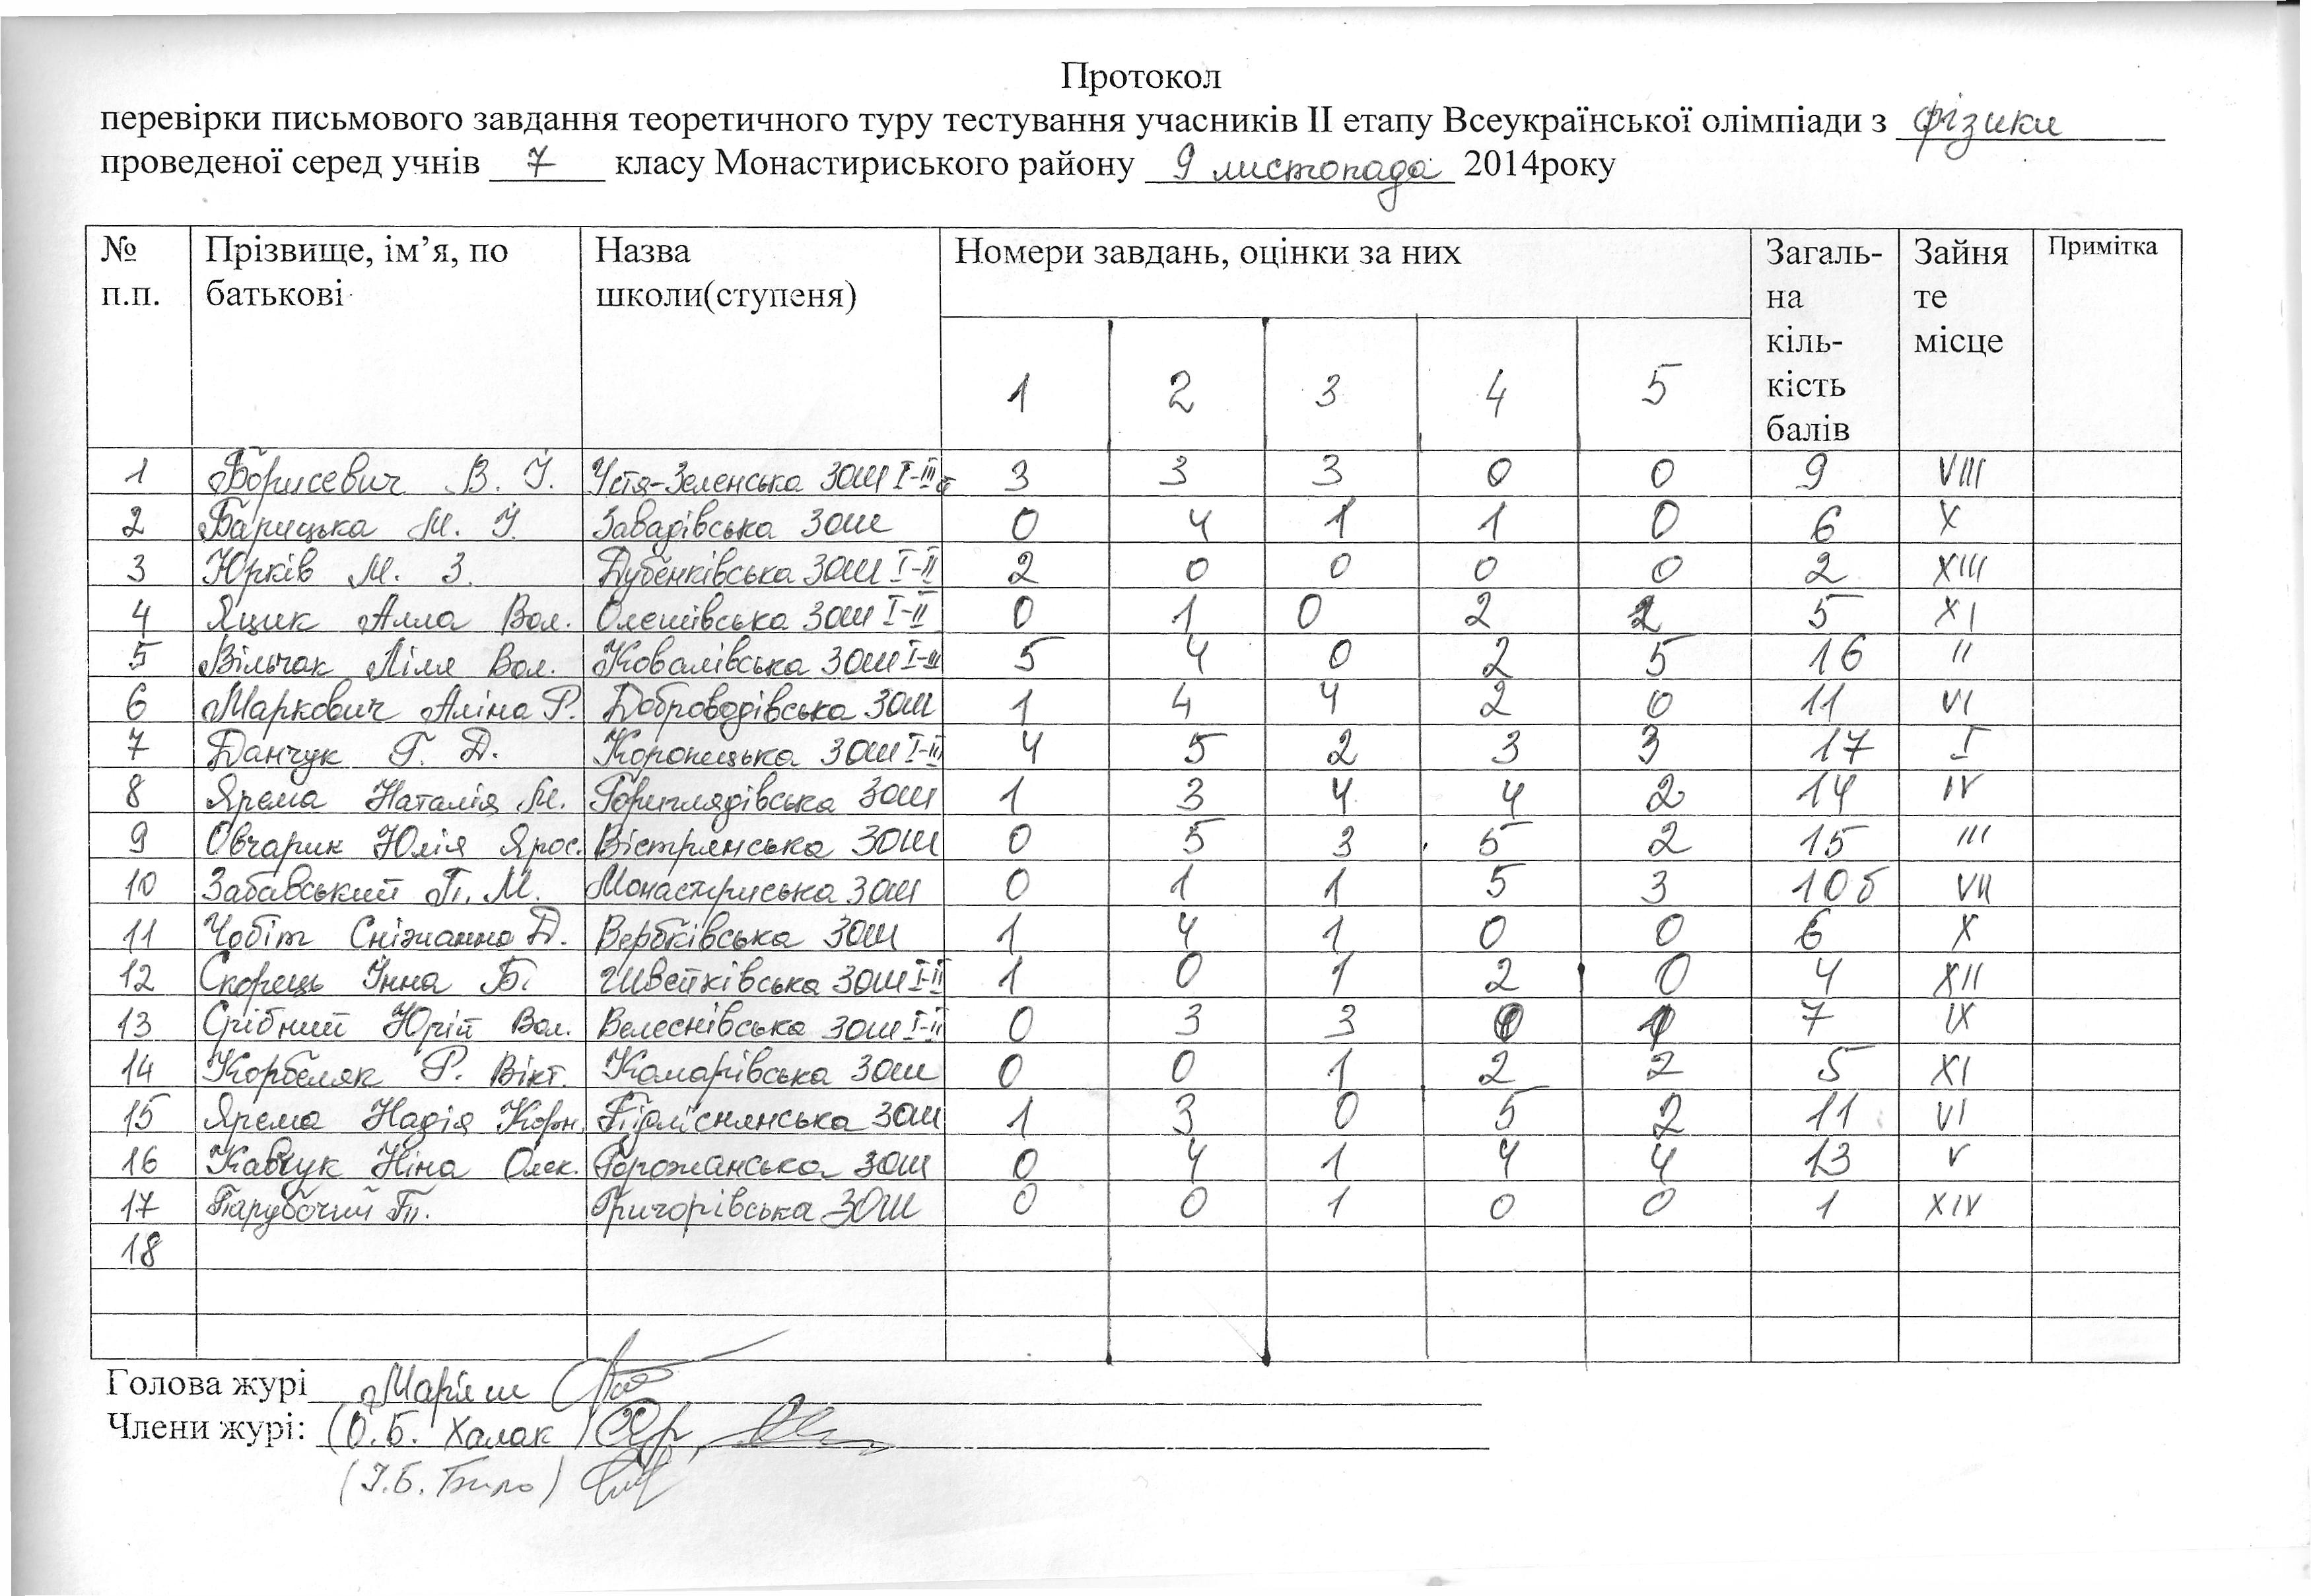 Протокол
перевірки письмового завдання теоретичного туру тестування учасників ІІ етапу Всеукраїнської олімпіади з фізики
проведеної серед учнів 7 класу Монастириського району 9 листопада 2014року
№ п.п. Прізвище, ім’я, по батькові Назва школи(ступеня) Номери завдань, оцінки за них Загаль-на кіль-кість балів Зайня те місце Примітка
1 2 3 4 5
1 Борисевич В. І. Устя-Зеленська ЗОШ І-ІІІ 3 3 3 0 0 9 VIII
2 Барицька М. І. Завадівська ЗОШ 0 4 1 1 0 6 X
3 Юрків М. З. Дубенківська ЗОШ І-ІІ 2 0 0 0 0 2 XIII
4 Яцик Алла Вол. Олешівська ЗОШ І-ІІ 0 1 0 2 2 5 XI
5 Вільчак Ліля Вол. Ковалівська ЗОШ І-ІІІ 5 4 0 2 5 16 II
6 Маркович Аліна Р. Доброводівська ЗОШ 1 4 4 2 0 11 VI
7 Данчук Г. Д. Коропецька ЗОШ І-ІІІ 4 5 2 3 3 17 I
8 Ярема Наталія М. Гориглядівська ЗОШ 1 3 4 4 2 14 IV
9 Овчарин Юлія Ярос. Вістрянська ЗОШ 0 5 3 5 2 15 III
10 Забавський П. М. Монастириська ЗОШ 0 1 1 5 3 10 б VII
11 Чобіт Сніжанна Д. Вербківська ЗОШ 1 4 1 0 0 6 X
12 Скорець Інна Б. Швейківська ЗОШ І-ІІ 1 0 1 2 0 4 XII
13 Срібний Юрій Вол. Велеснівська ЗОШ І-ІІ 0 3 3 0 1 7 IX
14 Корбеляк Р. Вікт. Комарівська ЗОШ 0 0 1 2 2 5 XI
15 Ярема Надія Корн. Підліснянська ЗОШ 1 3 0 5 2 11 VI
16 Кавчук Ніна Олек. Горожанська ЗОШ 0 4 1 4 4 13 V
17 Парубочий П. Григорівська ЗОШ 0 0 1 0 0 1 XIV
18
Голова журі Маріяш
Члени журі: (О.Б. Халак)
(І.Б. Било)